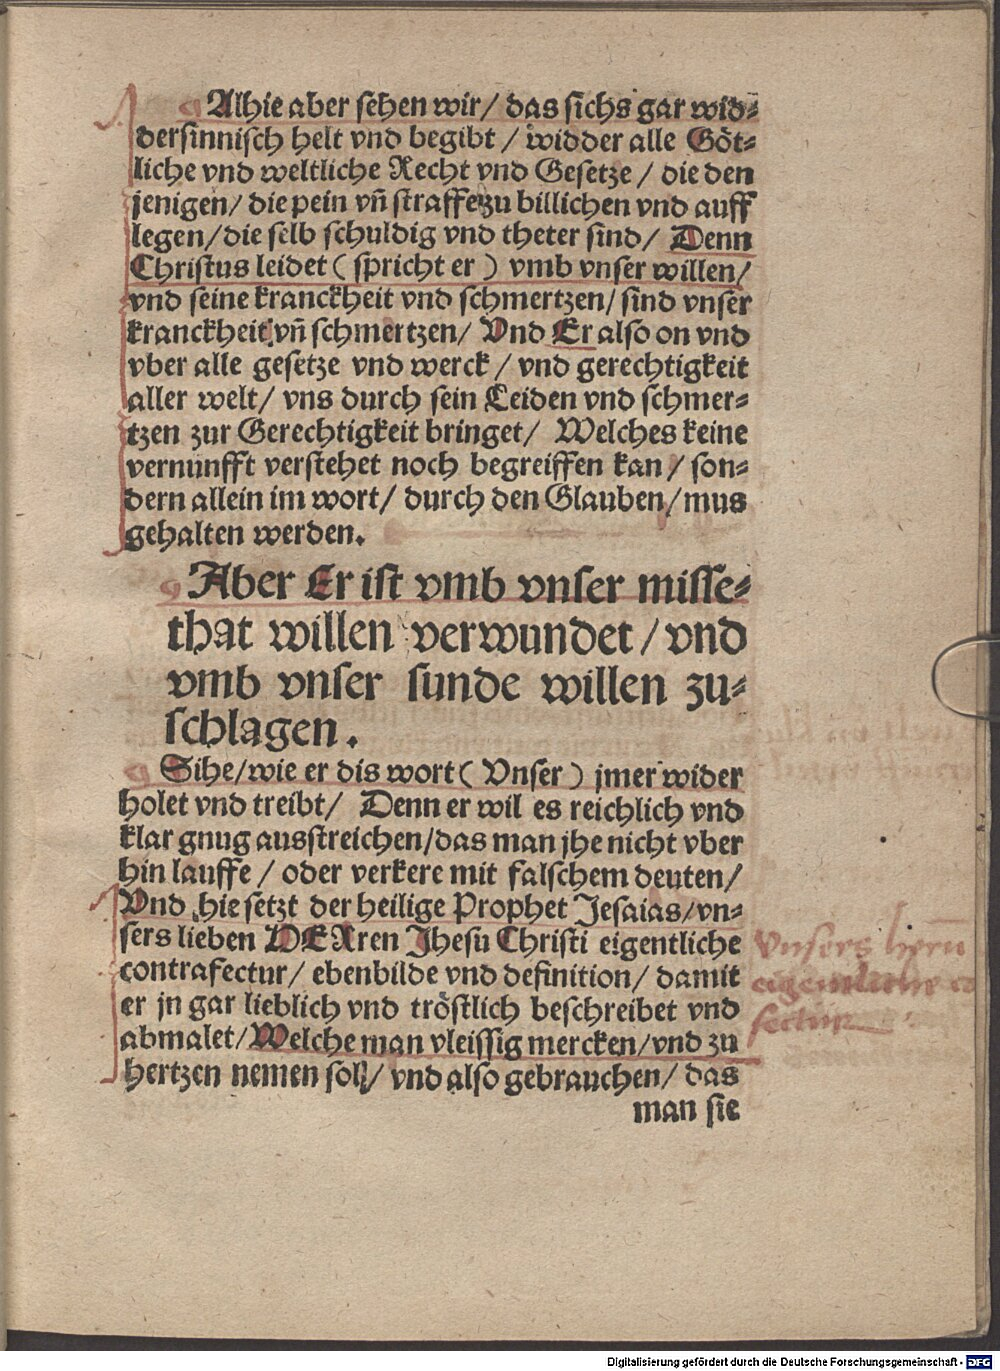 Alhie aber sehen wir/ das sichs gar wid⸗
dersinnisch helt vnd begibt / widder alle Göt⸗
liche vnd weltliche Recht vnd Gesetze / die den
jenigen/ die pein vn̄ straffe zu billichen vnd auff
legen/ die selb schuldig vnd theter sind/ Denn
Christus leidet ( spricht er ) vmb vnser willen/
vnd seine kranckheit vnd schmertzen/ sind vnser
kranckheit vn̄ schmertzen/ Vnd Er also on vnd
vber alle gesetze vnd werck / vnd gerechtigkeit
aller welt/ vns durch sein Leiden vnd schmer⸗
tzen zur Gerechtigkeit bringet/ Welches keine
vernunfft verstehet noch begreiffen kan / son⸗
dern allein im wort/ durch den Glauben/ mus
gehalten werden.
Aber Er ist vmb vnser misse⸗
that willen verwundet / vnd
vmb vnser sunde willen zu⸗
schlagen.
Sihe/ wie er dis wort ( Vnser ) jmer wider
holet vnd treibt/ Denn er wil es reichlich vnd
klar gnug ausstreichen/ das man jhe nicht vber
hin lauffe / oder verkere mit falschem deuten/
Vnd hie setzt der heilige Prophet Jesaias/ vn⸗
sers lieben HERren Jhesu Christi eigentliche
contrafectur/ ebenbilde vnd definition/ damit
er jn gar lieblich vnd tröstlich beschreibet vnd
abmalet/ Welche man vleissig mercken/ vnd zu
hertzen nemen sol/ vnd also gebrauchen/ das
man sie
Vnsers hern̄
Digitalisierung gefördert durch die Deutsche Forschungsgemeinschaft - DFG